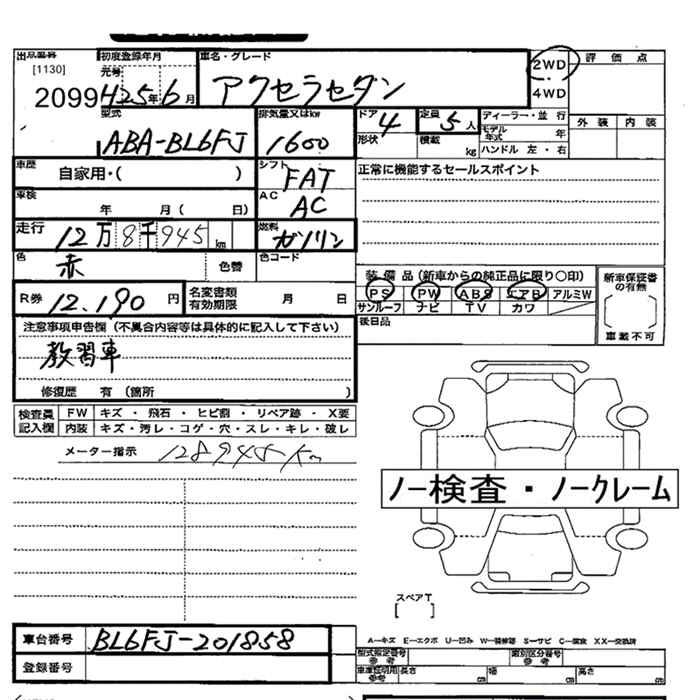 出品番号 初度登録年月 車名・グレード 2WD 評価点
[1130] 元号 アクセラセダン 4WD
2099 H25年6月 外装 内装
型式 ABA-BL6FJ 排気量又はkw 1600 ドア 4 定員 5人 ディーラー・並行
形状 積載 kg モデル年式 年
ハンドル 左・右
車歴 自家用・( ) シフト FAT 正常に機能するセールスポイント
車検 年 月( 日) AC AC
走行 12万8千945km 燃料 ガソリン
色 赤 色替 色コード
装備品(新車からの純正品に限り○印) 新車保証書の有無
R券 12,190円 名変書類有効期限 月 日 PS PW ABS エアB アルミW
サンルーフ ナビ TV カワ
注意事項申告欄(不具合内容等は具体的に記入して下さい) 後日品 車載不可
教習車
修復歴 有(箇所 )
検査員 FW キズ・飛石・ヒビ割・リペア跡・X要
記入欄 内装 キズ・汚レ・コゲ・穴・スレ・キレ・破レ
メーター指示 128945km
ノー検査・ノークレーム
スペアT
[ ]
車台番号 BL6FJ-201858
A—キズ E—エクボ U—凹ミ W—補修跡 S—サビ C—腐食 XX—交換済
登録番号 型式指定番号 参考 類別区分番号 参考
車庫証明用参考 長さ cm 幅 cm 高さ cm